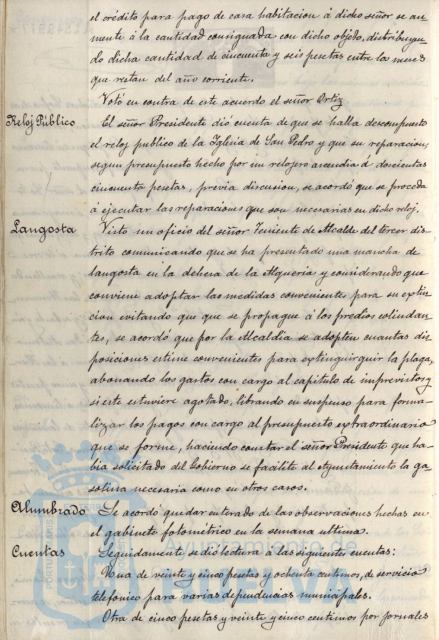 el crédito para pago de casa habitacion á dicho señor se au-
mente á la cantidad consignada con dicho objeto, distribuyen-
do dicha cantidad de cincuenta y seis pesetas entre los meses
que restan del año corriente.
Votó en contra de este acuerdo el señor Ortiz
Reloj Público
El señor Presidente dió cuenta de que se halla descompuesto
el reloj publico de la Iglesia de San Pedro y que su reparacion,
segun presupuesto hecho por un relojero ascendia á doscientas
cincuenta pesetas, previa discusion, se acordó que se proceda
á ejecutar las reparaciones que son necesarias en dicho reloj.
Langosta
Visto un oficio del señor Teniente de Alcalde del tercer dis-
trito comunicando que se ha presentado una mancha de
langosta en la dehesa de la Alqueria y considerando que
conviene adoptar las medidas convenientes para su extin-
cion evitando que que se propague á los predios colindan-
tes, se acordó que por la Alcaldia se adopten cuantas dis-
posiciones estime convenientes para extinguirguir la plaga,
abonando los gastos con cargo al capitulo de imprevistos y
si este estuviere agotado, librando en suspenso para forma-
lizar los pagos con cargo al presupuesto extraordinario
que se forme, haciendo constar el señor Presidente que ha-
bia solicitado del Gobierno se facilite al Ayuntamiento la ga-
solina necesaria como en otros casos.
Alumbrado
Se acordo quedar enterado de las observaciones hechas en
el gabinete fotométrico en la semana ultima.
Cuentas
Seguidamente se dió lectura á las siguientes cuentas:
Una de veinte y cinco pesetas y ochenta centimos, de servicio
telefónico para varias dependencias municipales.
Otra de cinco pesetas y veinte y cinco centimos por jornales